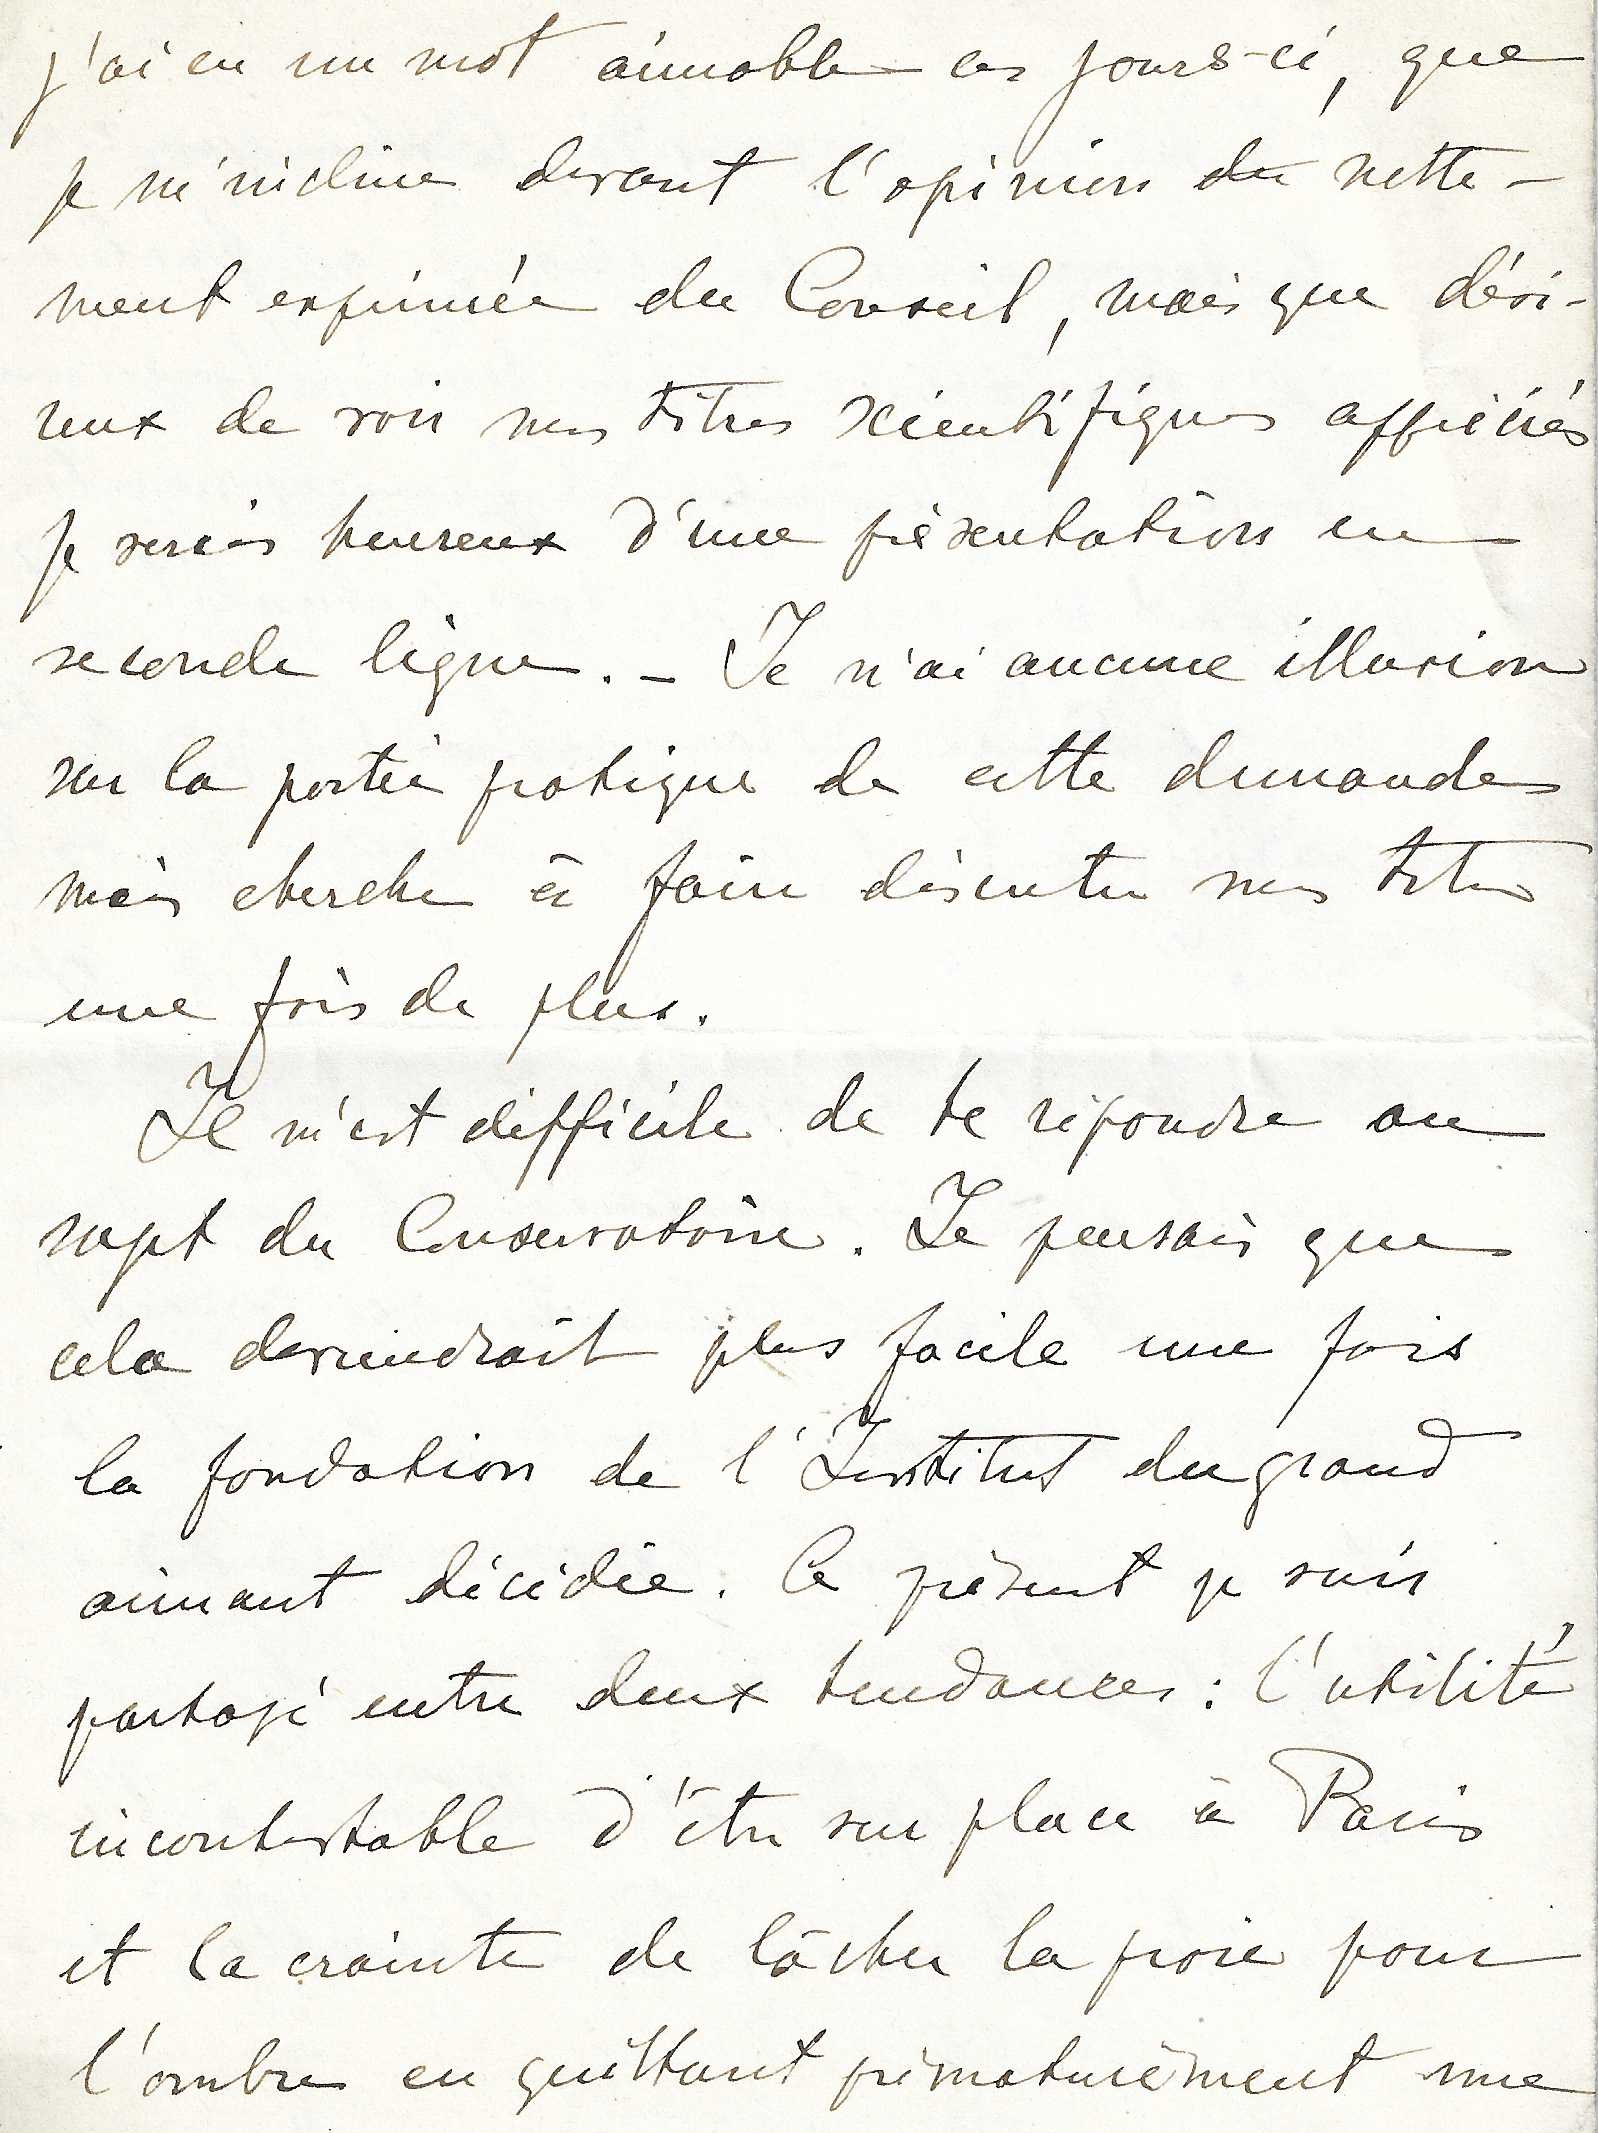 j'ai eu un mot aimable ces jours-ci, que
je m'incline devant l'opinion du nette-
ment exprimée du Conseil, mais que dési-
reux de voir mes titres scientifiques appréciés
je serais heureux d'une présentation en
seconde ligne. - Je n'ai aucune illusion
sur la portée pratique de cette demande
mais cherche à faire discuter mes titres
une fois de plus.
Il m'est difficile de te répondre au
sujet du Conservatoire. Je pensais que
cela deviendrait plus facile une fois
la fondation de l'Institut du grand
aimant décidée. Ce présent je suis
partagé entre deux tendances : l'utilité
incontestable d'être sur place à Paris
et la crainte de lâcher la proie pour
l'ombre en quittant prématurément une